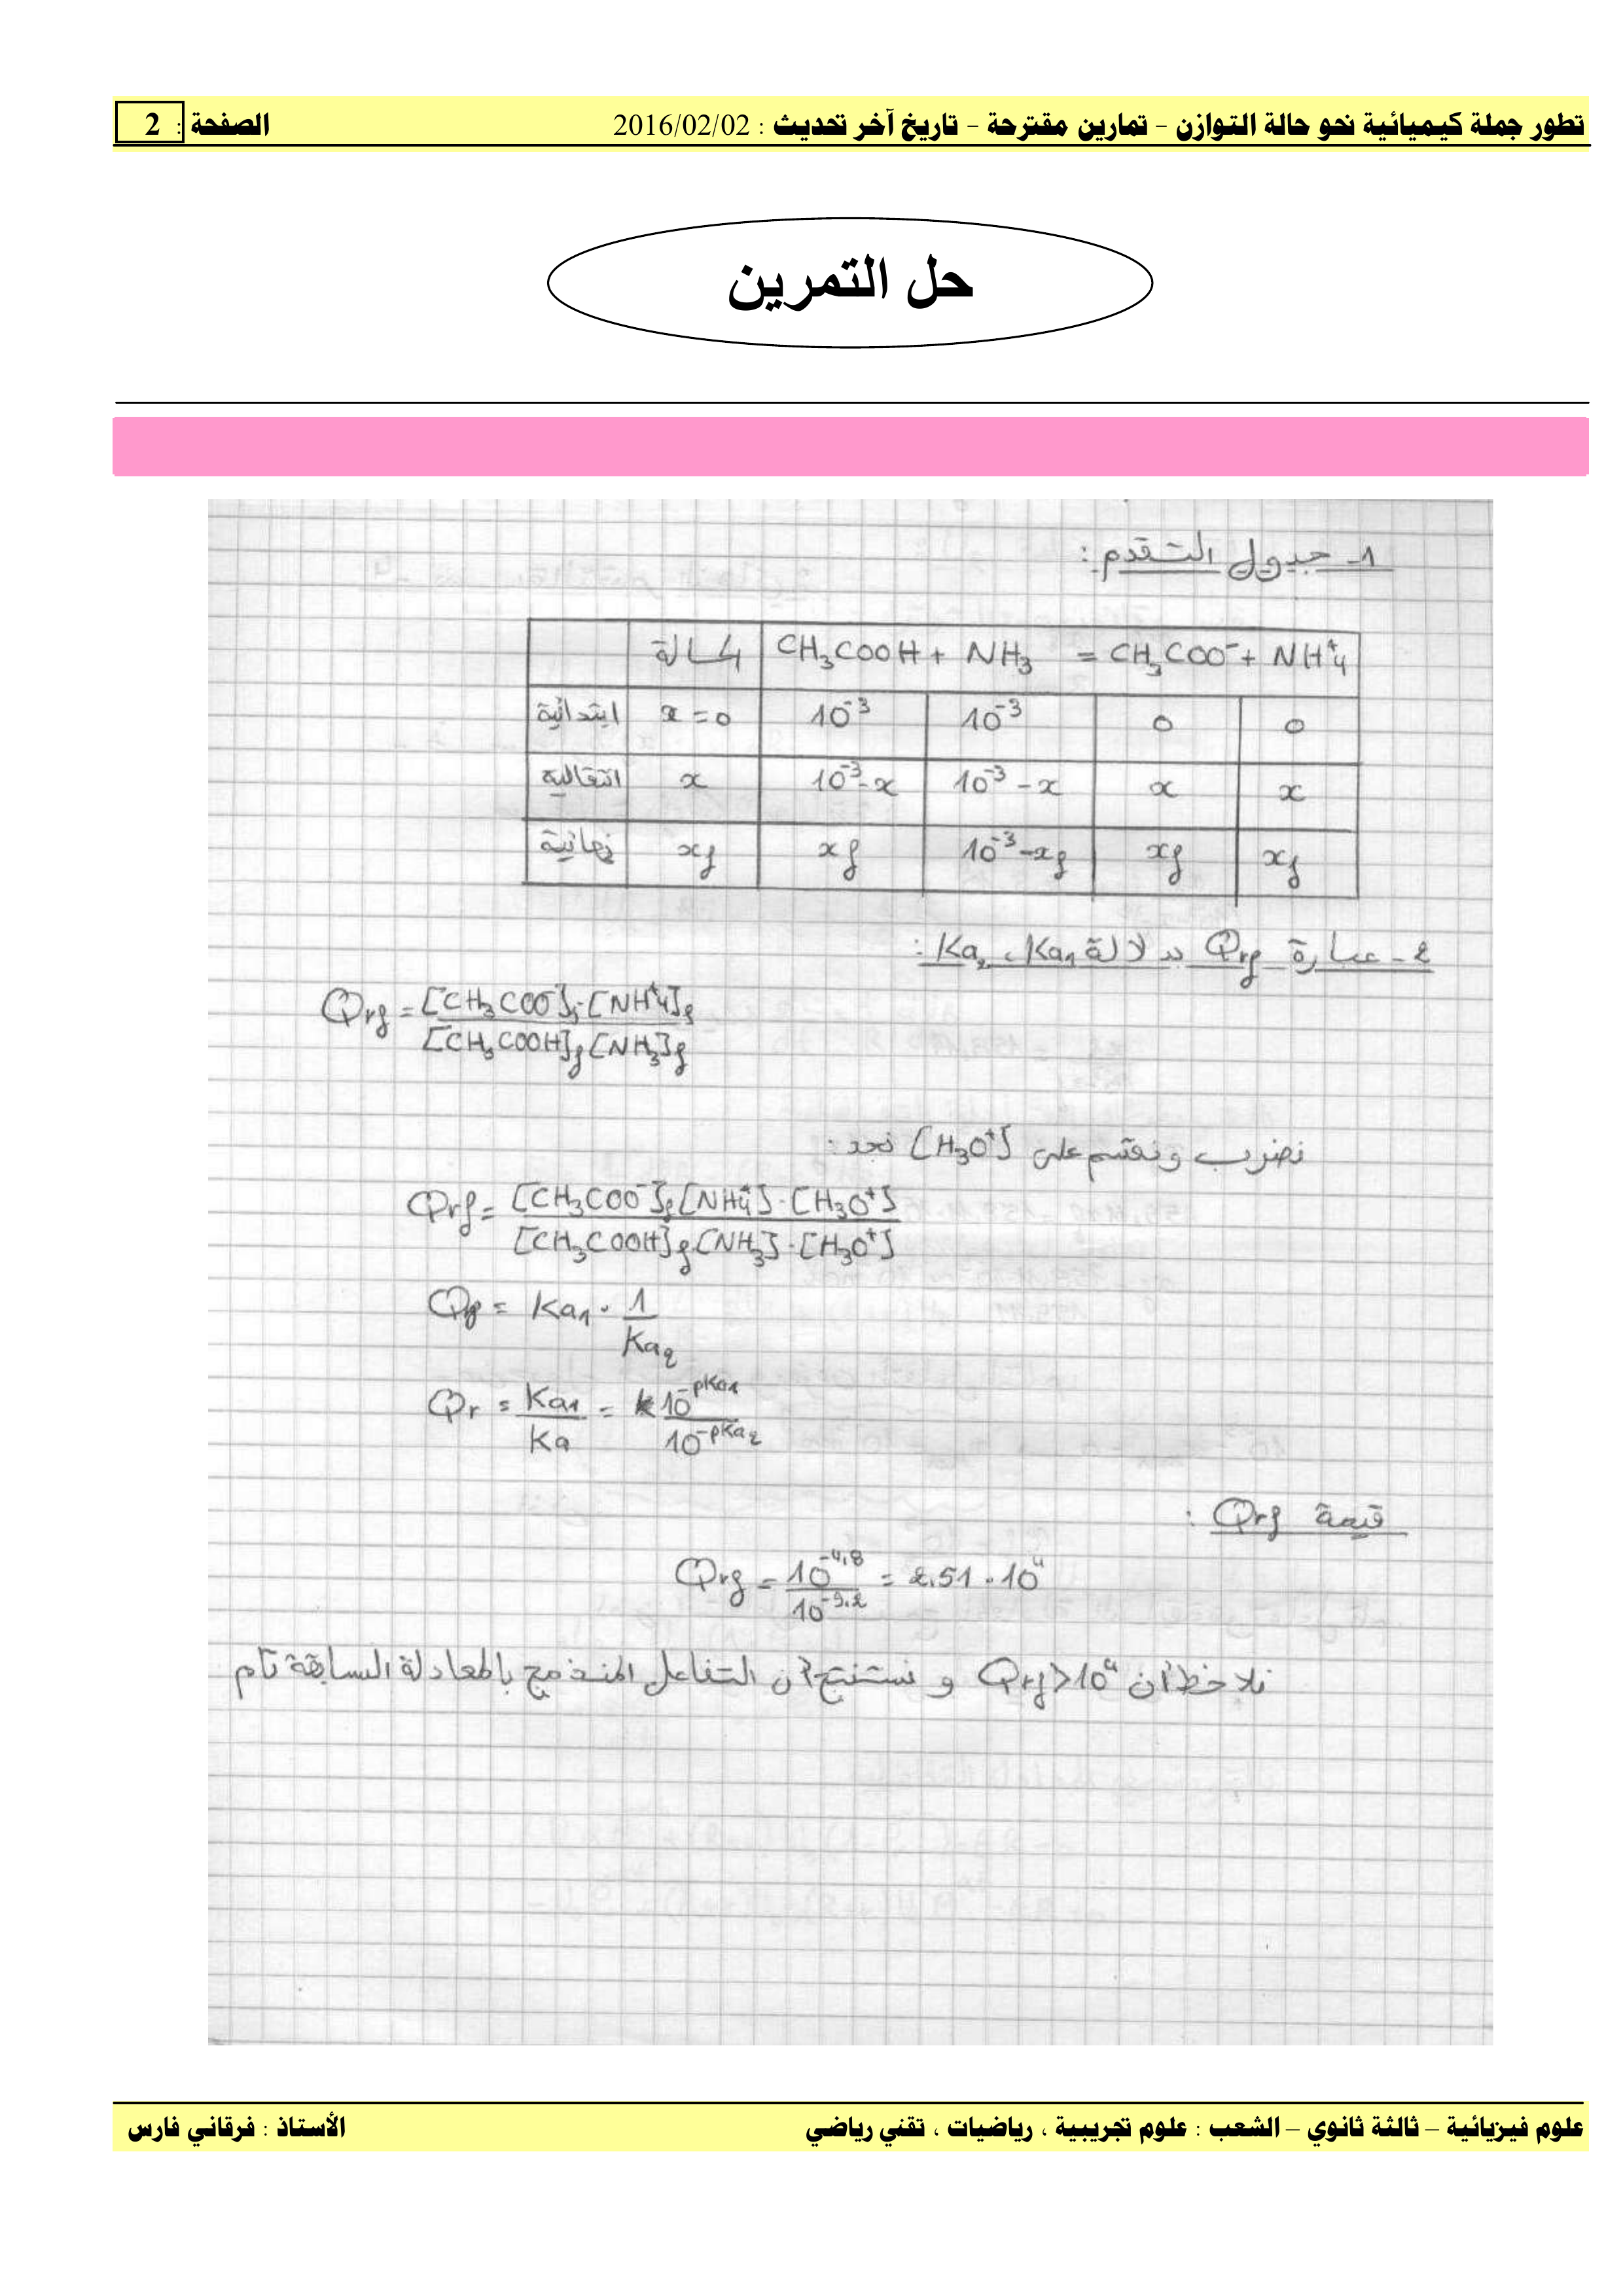 تطور جملة كيميائية نحو حالة التوازن – تمارين مقترحة – تاريخ آخر تحديث : 2016/02/02 الصفحة : 2
حل التمرين
1- جدول التقدم :
الحالة CH₃COOH + NH₃ = CH₃COO⁻ + NH⁺₄
ابتدائية x = 0 10⁻³ 10⁻³ 0 0
انتقالية x 10⁻³-x 10⁻³-x x x
نهائية xf xf 10⁻³-xf xf xf
2- عبارة Qrf بدلالة Ka₁ ، Ka₂ :
Qrf = [CH₃COO⁻]f·[NH⁺₄]f / [CH₃COOH]f[NH₃]f
نضرب ونقسم على [H₃O⁺] نجد :
Qrf = [CH₃COO⁻]f[NH⁺₄]·[H₃O⁺] / [CH₃COOH]f[NH₃]·[H₃O⁺]
Qrf = Ka₁ · 1 / Ka₂
Qr = Ka₁ / Ka = 10^-pKa₁ / 10^-pKa₂
قيمة Qrf :
Qrf = 10^-4,8 / 10^-9.2 = 2.51 · 10⁴
نلاحظ أن Qrf > 10⁴ و نستنتج أن التفاعل المنمذج بالمعادلة السابقة تام
علوم فيزيائية – ثالثة ثانوي – الشعب : علوم تجريبية ، رياضيات ، تقني رياضي الأستاذ : فرقاني فارس